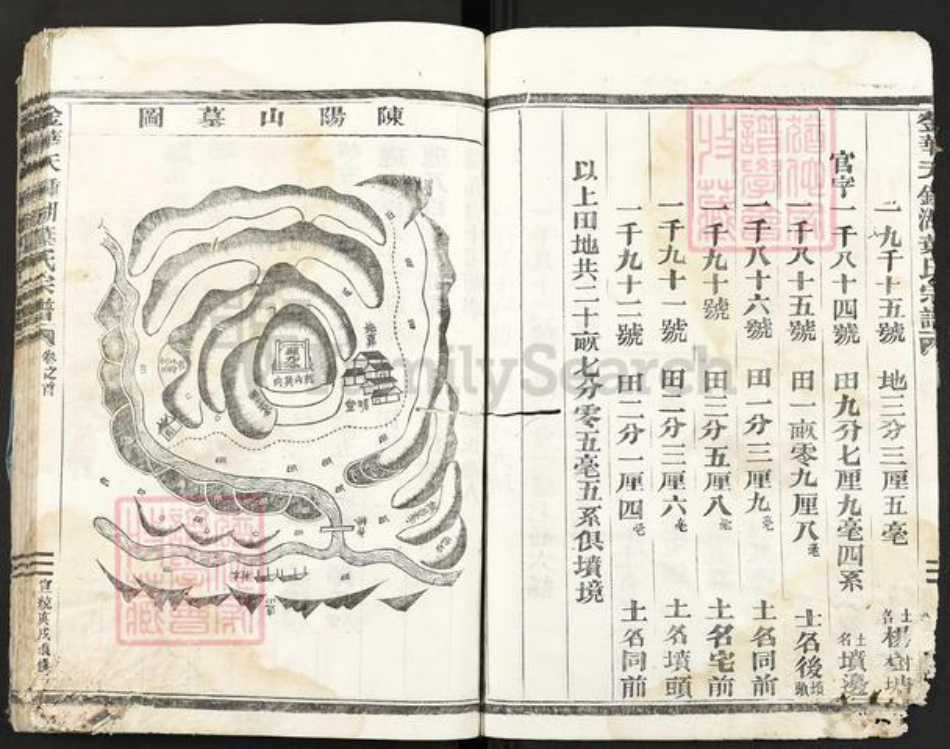 二九千十五號 地三分三厘五毫 土名楊樹塘
官字一千八十四號 田九分七厘九毫四系 土名墳邊
一千八十五號 田一畝零九厘八毫 土名後墳頭
一千八十六號 田一分三厘九毫 土名同前
一千九十號 田三分五厘八毫 土名宅前
一千九十一號 田二分三厘六毫 土名墳頭
一千九十二號 田二分一厘四毫 土名同前
以上田地共二十畝七分零五毫五系俱墳境
陳陽山墓圖
明堂
葉氏宗譜
卷之首
宣統庚戌重修
FamilySearch